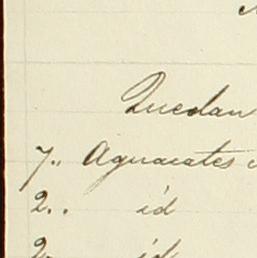 Quedan
7.. Aguacates
2.. id
2.. id